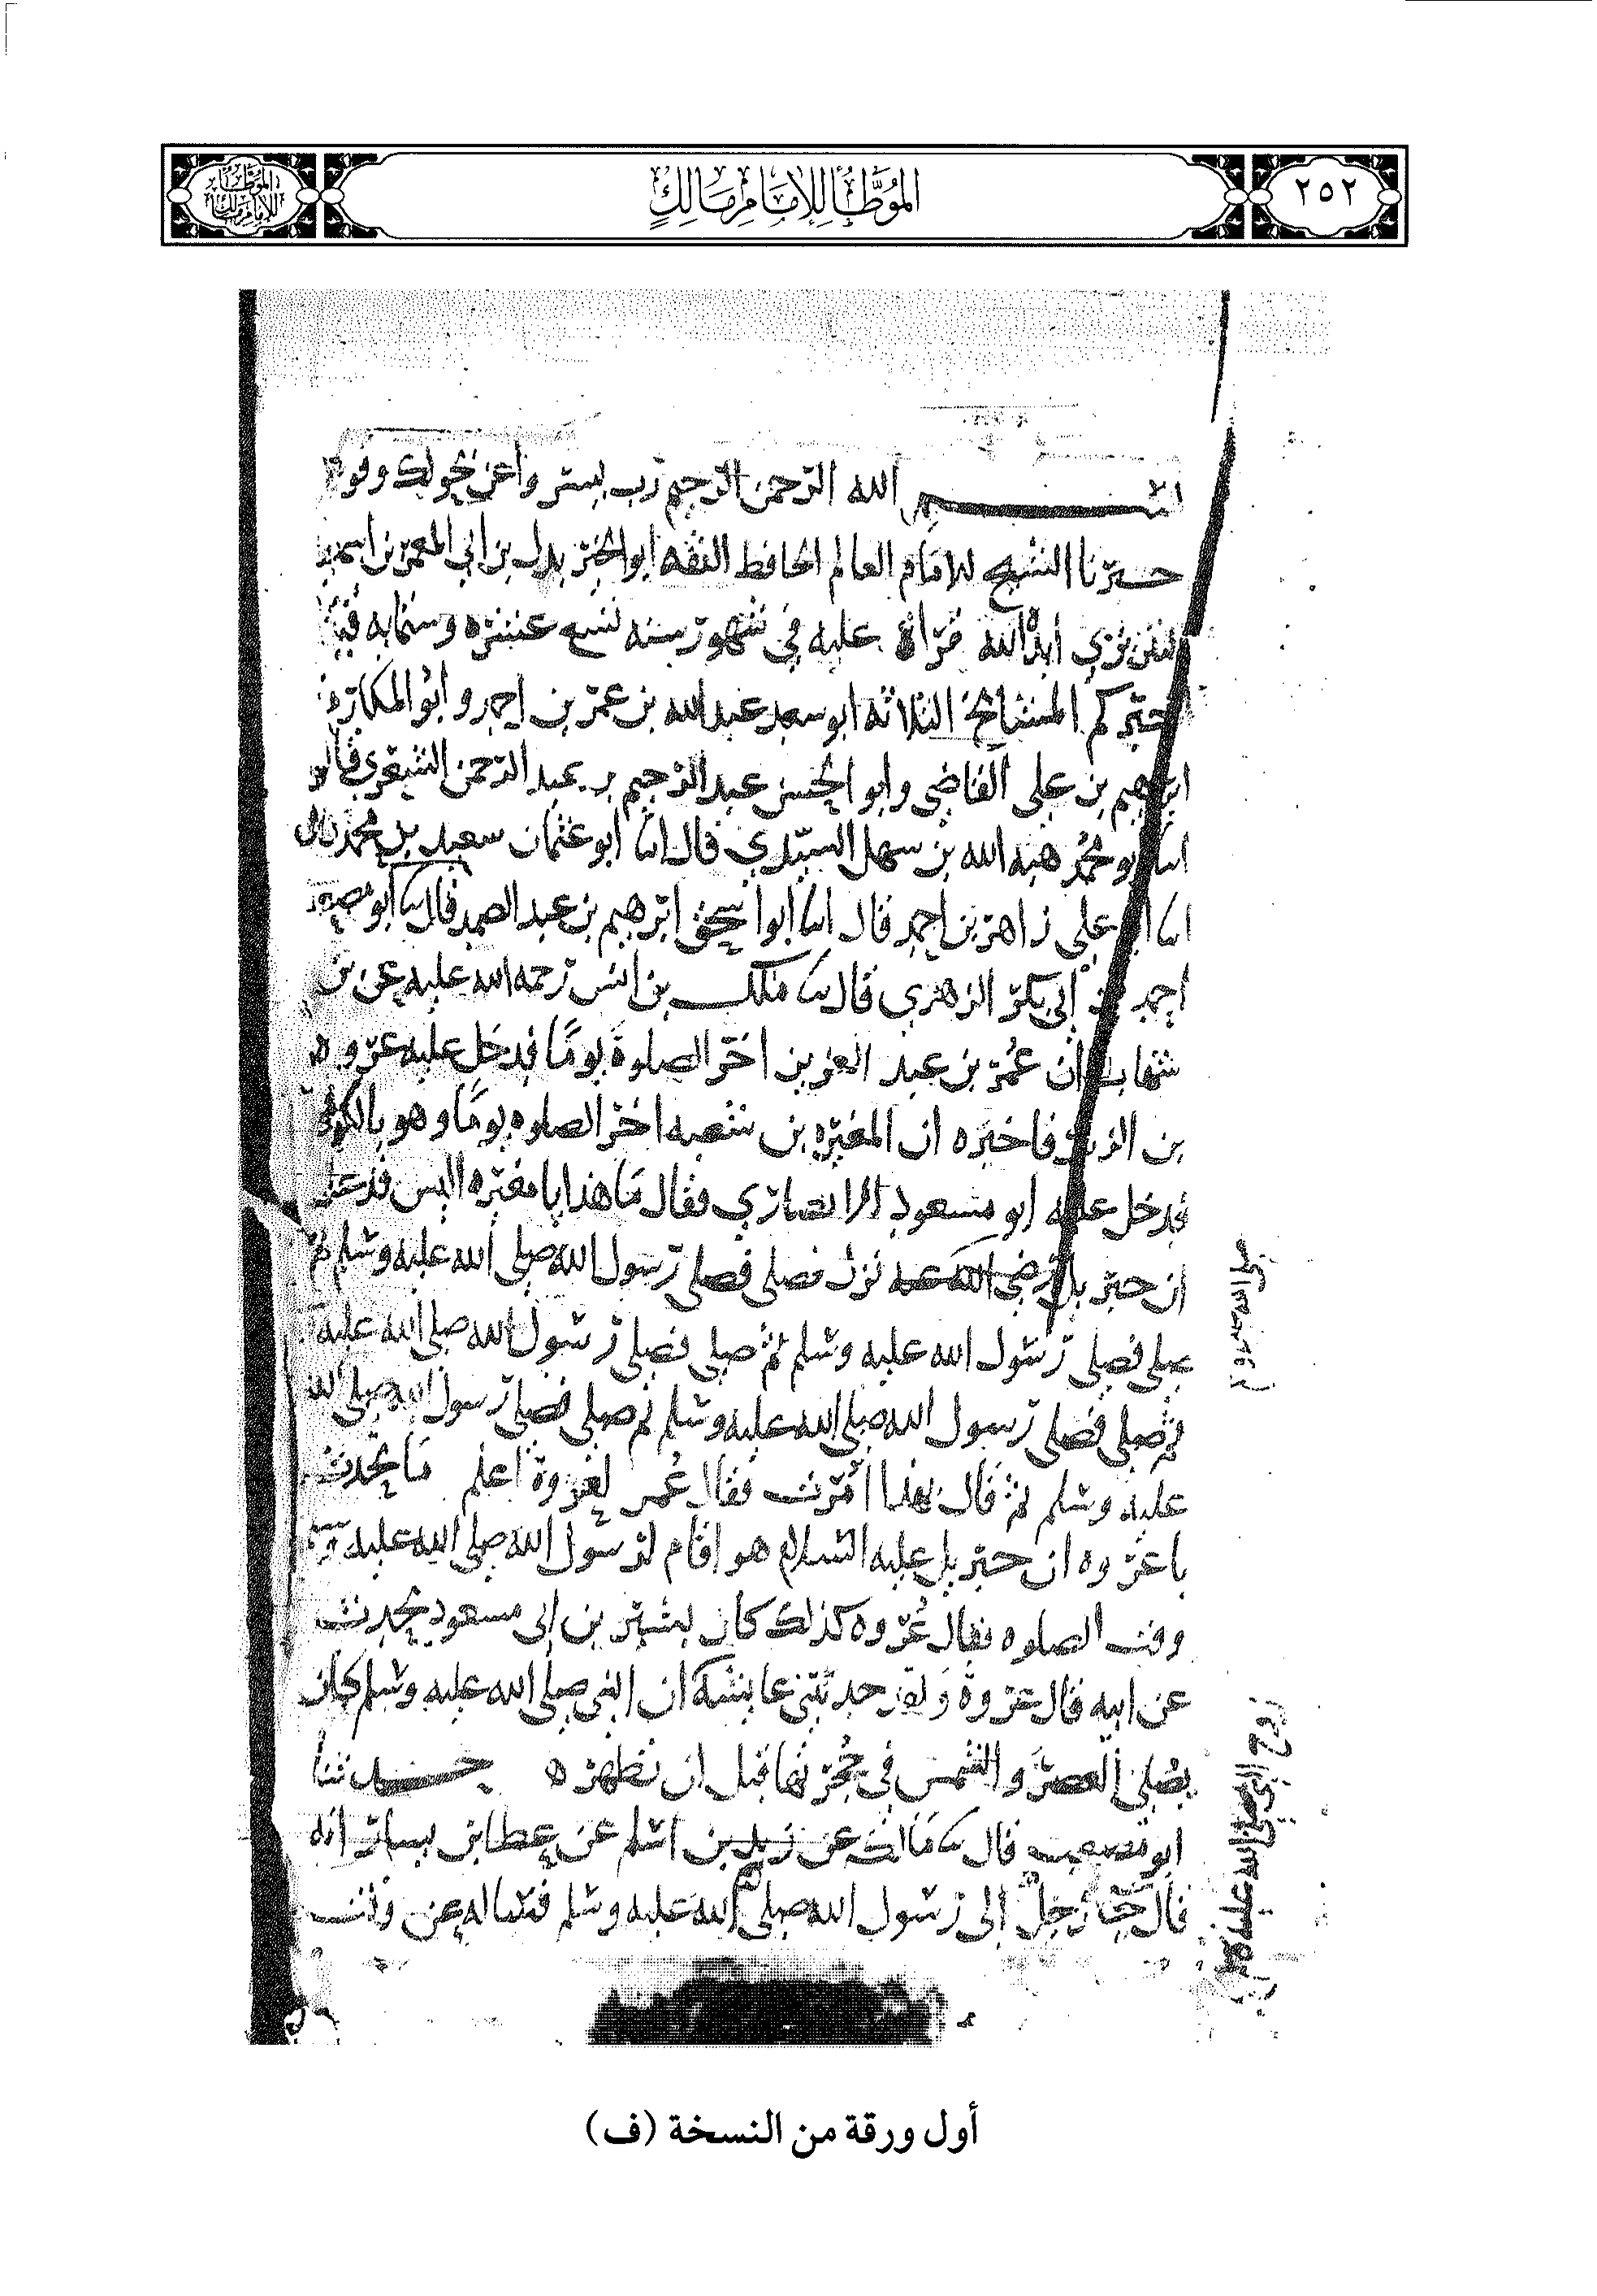 ٢٥٢
الموطأ للإمام مالك
الموطأ للإمام مالك
بسم الله الرحمن الرحيم رب يسر واعن بحولك وقو
الشيخ الامام العالم الحافظ الثقه ابو الخير بدل بن ابي المعمر بن اسمعيل
ايده الله قراة عليه في شهور سنه تسع عشره وستمايه
المشايخ الثلاثه ابو سعد عبدالله بن عمر بن احمد وابو المكارم
ابرهيم بن علي القاضي وابو الحسن عبد الرحيم بن عبد الرحمن الشعري قالو
انا ابو محمد هبه الله بن سهل السيدي قال انا ابو عثمان سعيد بن محمد قال
انا ابو علي زاهر بن احمد قال انا ابو اسحق ابرهيم بن عبد الصمد قال ثنا ابو مصعب
احمد بن ابي بكر الزهري قال ثنا ملك بن انس رحمه الله عليه عن بن
شهاب ان عمر بن عبد العزيز اخر الصلوة يوما فدخل عليه عروه
بن الزبير فاخبره ان المغيره بن شعبه اخر الصلوه يوما وهو بالكوفه
فدخل عليه ابو مسعود الانصاري فقال ما هذا يا مغيره اليس قد علمت
ان جبريل رضي الله عنه نزل فصلى فصلى رسول الله صلى الله عليه وسلم ثم
صلى فصلى رسول الله عليه وسلم ثم صلى فصلى رسول الله صلى الله عليه
ثم صلى فصلى رسول الله صلى الله عليه وسلم ثم صلى فصلى رسول الله صلى الله
عليه وسلم ثم قال بهذا امرت فقال عمر لعروة اعلم ما يحدث
يا عروه ان جبريل عليه السلام هو اقام لرسول الله صلى الله عليه وسلم
وقت الصلوه فقال عروه كذلك كان بشير بن ابي مسعود يحدث
عن ابيه قال عروة ولقد حدثتني عايشة ان النبي صلى الله عليه وسلم كان
يصلي العصر والشمس في حجرتها قبل ان تظهر ه حدثنا
ابو مصعب قال ثنا مالك عن زيد بن اسلم عن عطا بن يسار انه
قال جا رجل الى رسول الله صلى الله عليه وسلم فساله عن وقت
زوج النبي صلى الله عليه وسلم
أول ورقة من النسخة (ف)